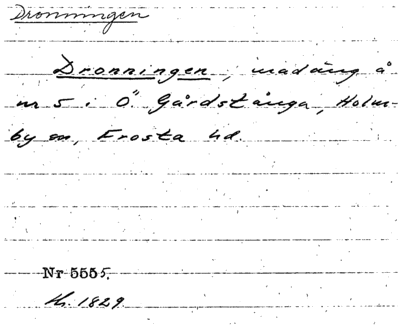 Dronningen
Dronningen, madäng å
nr 5 i Ö. Gårdstånga, Holm-
by sn, Frosta hd.
Nr 5555.
Kr. 1829.